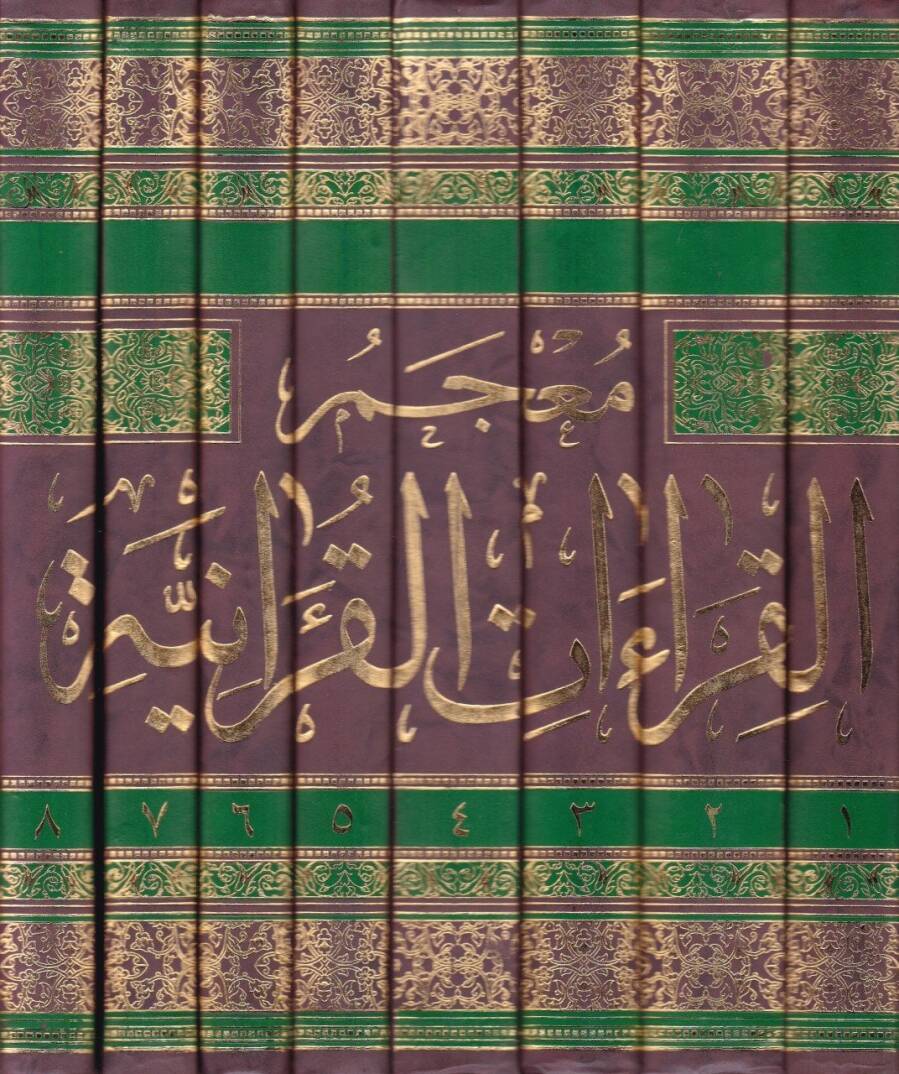 مُعْجَمُ
القِرَاءَاتِ القُرْآنِيَّةِ
١ ٢ ٣ ٤ ٥ ٦ ٧ ٨